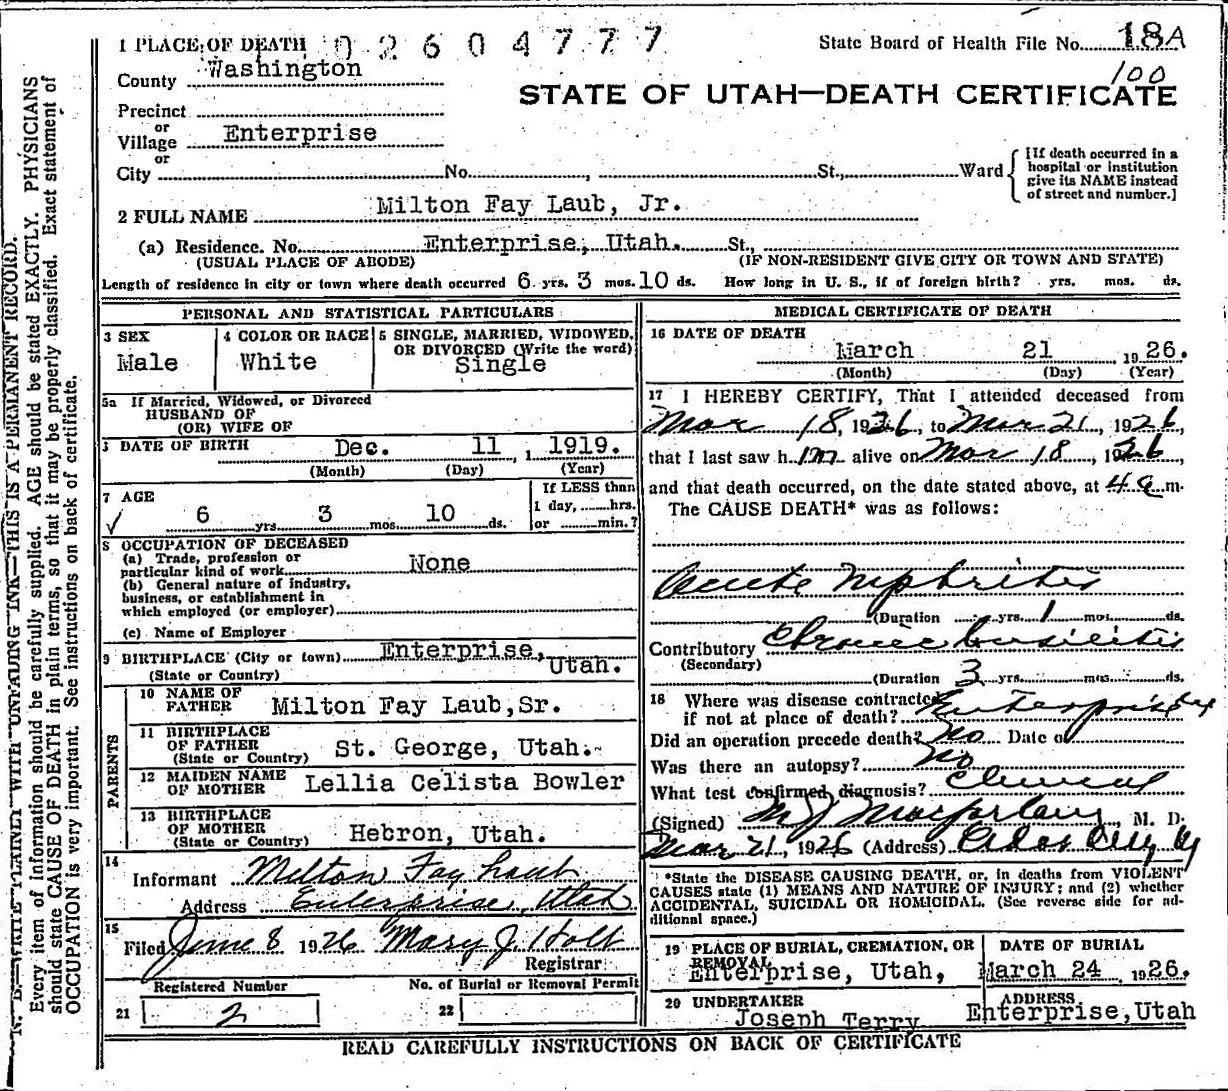 1 PLACE OF DEATH 0 2 6 0 4 7 7 7
State Board of Health File No. 18A
100
County Washington
STATE OF UTAH—DEATH CERTIFICATE
Precinct
or
Village Enterprise
or
City No. , St., Ward
[If death occurred in a
hospital or institution
give its NAME instead
of street and number.]
2 FULL NAME Milton Fay Laub, Jr.
(a) Residence. No. Enterprise, Utah. St.,
(USUAL PLACE OF ABODE) (IF NON-RESIDENT GIVE CITY OR TOWN AND STATE)
Length of residence in city or town where death occurred 6 yrs. 3 mos. 10 ds. How long in U. S., if of foreign birth? yrs. mos. ds.
PERSONAL AND STATISTICAL PARTICULARS
3 SEX
Male
4 COLOR OR RACE
White
5 SINGLE, MARRIED, WIDOWED,
OR DIVORCED (Write the word)
Single
5a If Married, Widowed, or Divorced
HUSBAND OF
(OR) WIFE OF
DATE OF BIRTH Dec. 11, 1919.
(Month) (Day) (Year)
7 AGE
6 yrs. 3 mos. 10 ds.
If LESS than
1 day, hrs.
or min.?
8 OCCUPATION OF DECEASED
(a) Trade, profession or
particular kind of work None
(b) General nature of industry,
business, or establishment in
which employed (or employer)
(c) Name of Employer
9 BIRTHPLACE (City or town) Enterprise,
(State or Country) Utah.
PARENTS
10 NAME OF
FATHER Milton Fay Laub, Sr.
11 BIRTHPLACE
OF FATHER
(State or Country) St. George, Utah.
12 MAIDEN NAME
OF MOTHER Lellia Celista Bowler
13 BIRTHPLACE
OF MOTHER
(State or Country) Hebron, Utah.
14
Informant Milton Fay Laub
Address Enterprise, Utah
15
Filed June 8 1926 Mary J. Holt
Registrar
Registered Number
21 2
No. of Burial or Removal Permit
22
MEDICAL CERTIFICATE OF DEATH
16 DATE OF DEATH
March 21 1926.
(Month) (Day) (Year)
17 I HEREBY CERTIFY, That I attended deceased from
Mar 18, 1926, to Mar 21, 1926,
that I last saw him alive on Mar 18, 1926,
and that death occurred, on the date stated above, at 4 a m.
The CAUSE DEATH* was as follows:
Acute Nephritis
(Duration yrs. 1 mos. ds.
Contributory Chronic
(Secondary)
(Duration 3 yrs. mos. ds.
18 Where was disease contracted
if not at place of death? Enterprise
Did an operation precede death? No Date of
Was there an autopsy? No
What test confirmed diagnosis? Clinical
(Signed) M J Macfarlane, M. D.
Mar 21, 1926 (Address) Cedar City U
*State the DISEASE CAUSING DEATH, or, in deaths from VIOLENT
CAUSES state (1) MEANS AND NATURE OF INJURY; and (2) whether
ACCIDENTAL, SUICIDAL OR HOMICIDAL. (See reverse side for ad-
ditional space.)
19 PLACE OF BURIAL, CREMATION, OR
REMOVAL
Enterprise, Utah,
DATE OF BURIAL
March 24 1926.
20 UNDERTAKER
Joseph Terry
ADDRESS
Enterprise, Utah
READ CAREFULLY INSTRUCTIONS ON BACK OF CERTIFICATE
N. B.—WRITE PLAINLY WITH UNFADING INK—THIS IS A PERMANENT RECORD.
Every item of information should be carefully supplied. AGE should be stated EXACTLY. PHYSICIANS
should state CAUSE OF DEATH in plain terms, so that it may be properly classified. Exact statement of
OCCUPATION is very important. See instructions on back of certificate.